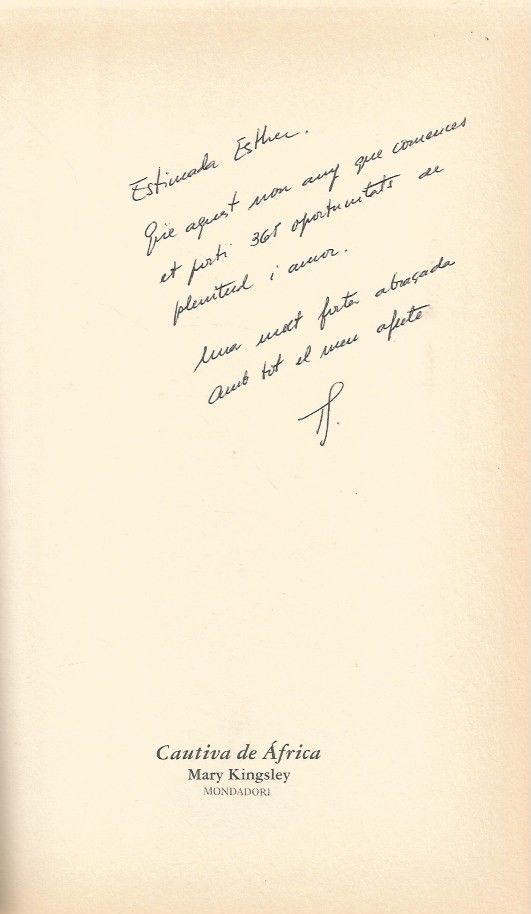 Estimada Esther.
Que aquest nou any que comences
et porti 365 oportunitats de
plenitud i amor.
Una molt forta abraçada
amb tot el meu afecte
Cautiva de África
Mary Kingsley
MONDADORI